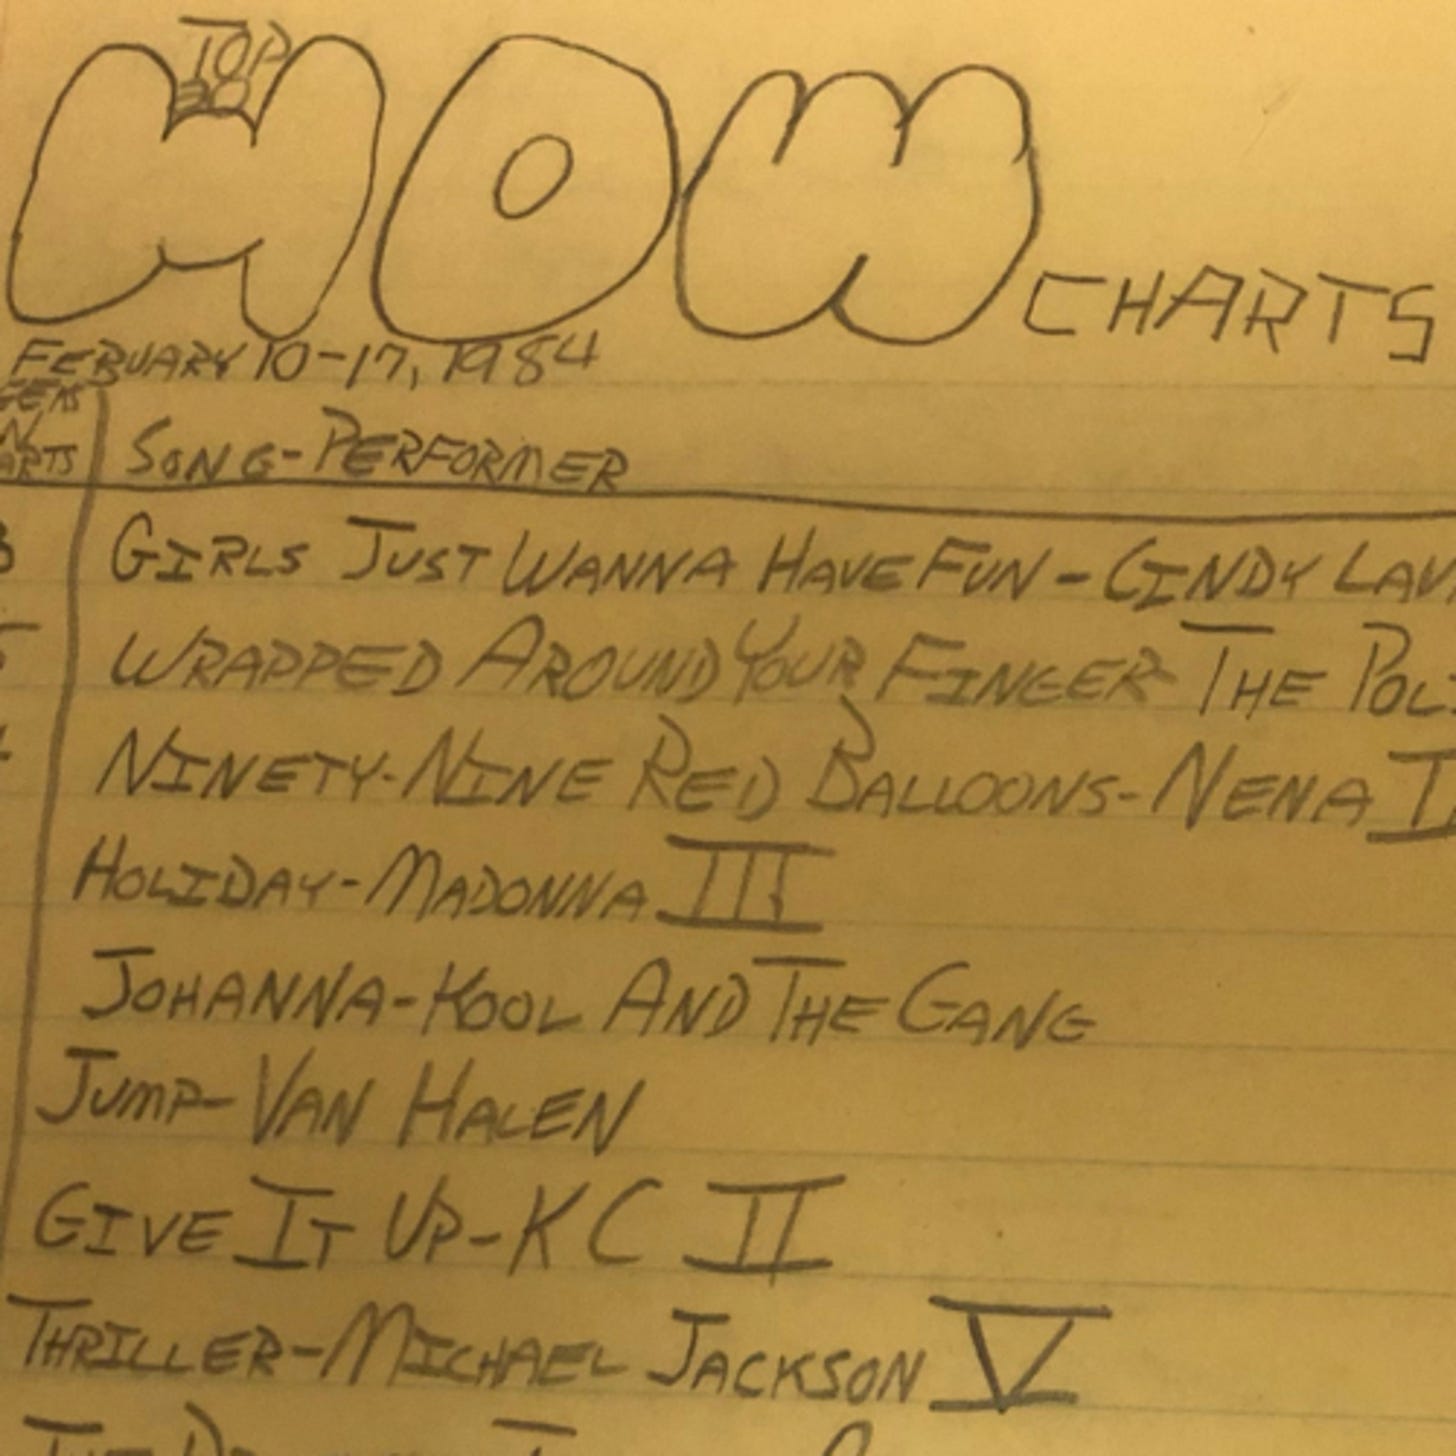 TOP
30
HOW CHARTS
FEBUARY 10-17, 1984
EEKS
N
ARTS
SONG-PERFORMER
3 GIRLS JUST WANNA HAVE FUN - CINDY LAU
5 WRAPPED AROUND YOUR FINGER- THE POLI
NINETY-NINE RED BALLOONS-NENA I
HOLIDAY-MADONNA III
JOHANNA-KOOL AND THE GANG
JUMP-VAN HALEN
GIVE IT UP-KC II
THRILLER-MICHAEL JACKSON V
THE